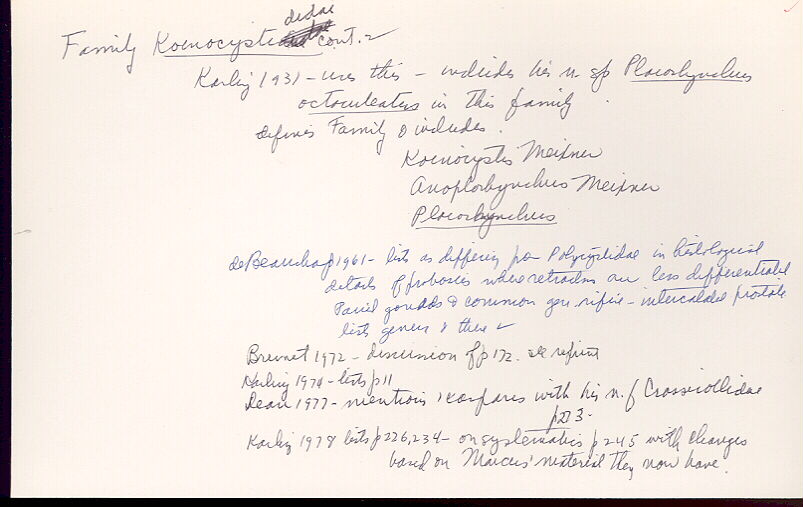 didae
Family Koinocysti cont. ✓
Karling 1931 - uses this - includes his n. sp Placorhynchus
octaculeatus in this family.
defines Family & includes.
Koinocystis Meixner
Anoplorhynchus Meixner
Placorhynchus
de Beauchamp 1961 - lists as differing from Polycystidae in histological
details of proboscis where retractors are less differentiated
Paired gonads & common gen. - intercalated prostate
lists genera & there ✓
Brunet 1972 - discussion of p 172. see reprint
Karling 1974 - lists p 11
Dean 1977 - mentions & compares with his n. f Crassicollidae
p 273 -
Karling 1978 lists p 226, 234 - on systematics p 245 with changes
based on Marcus' material they now have.